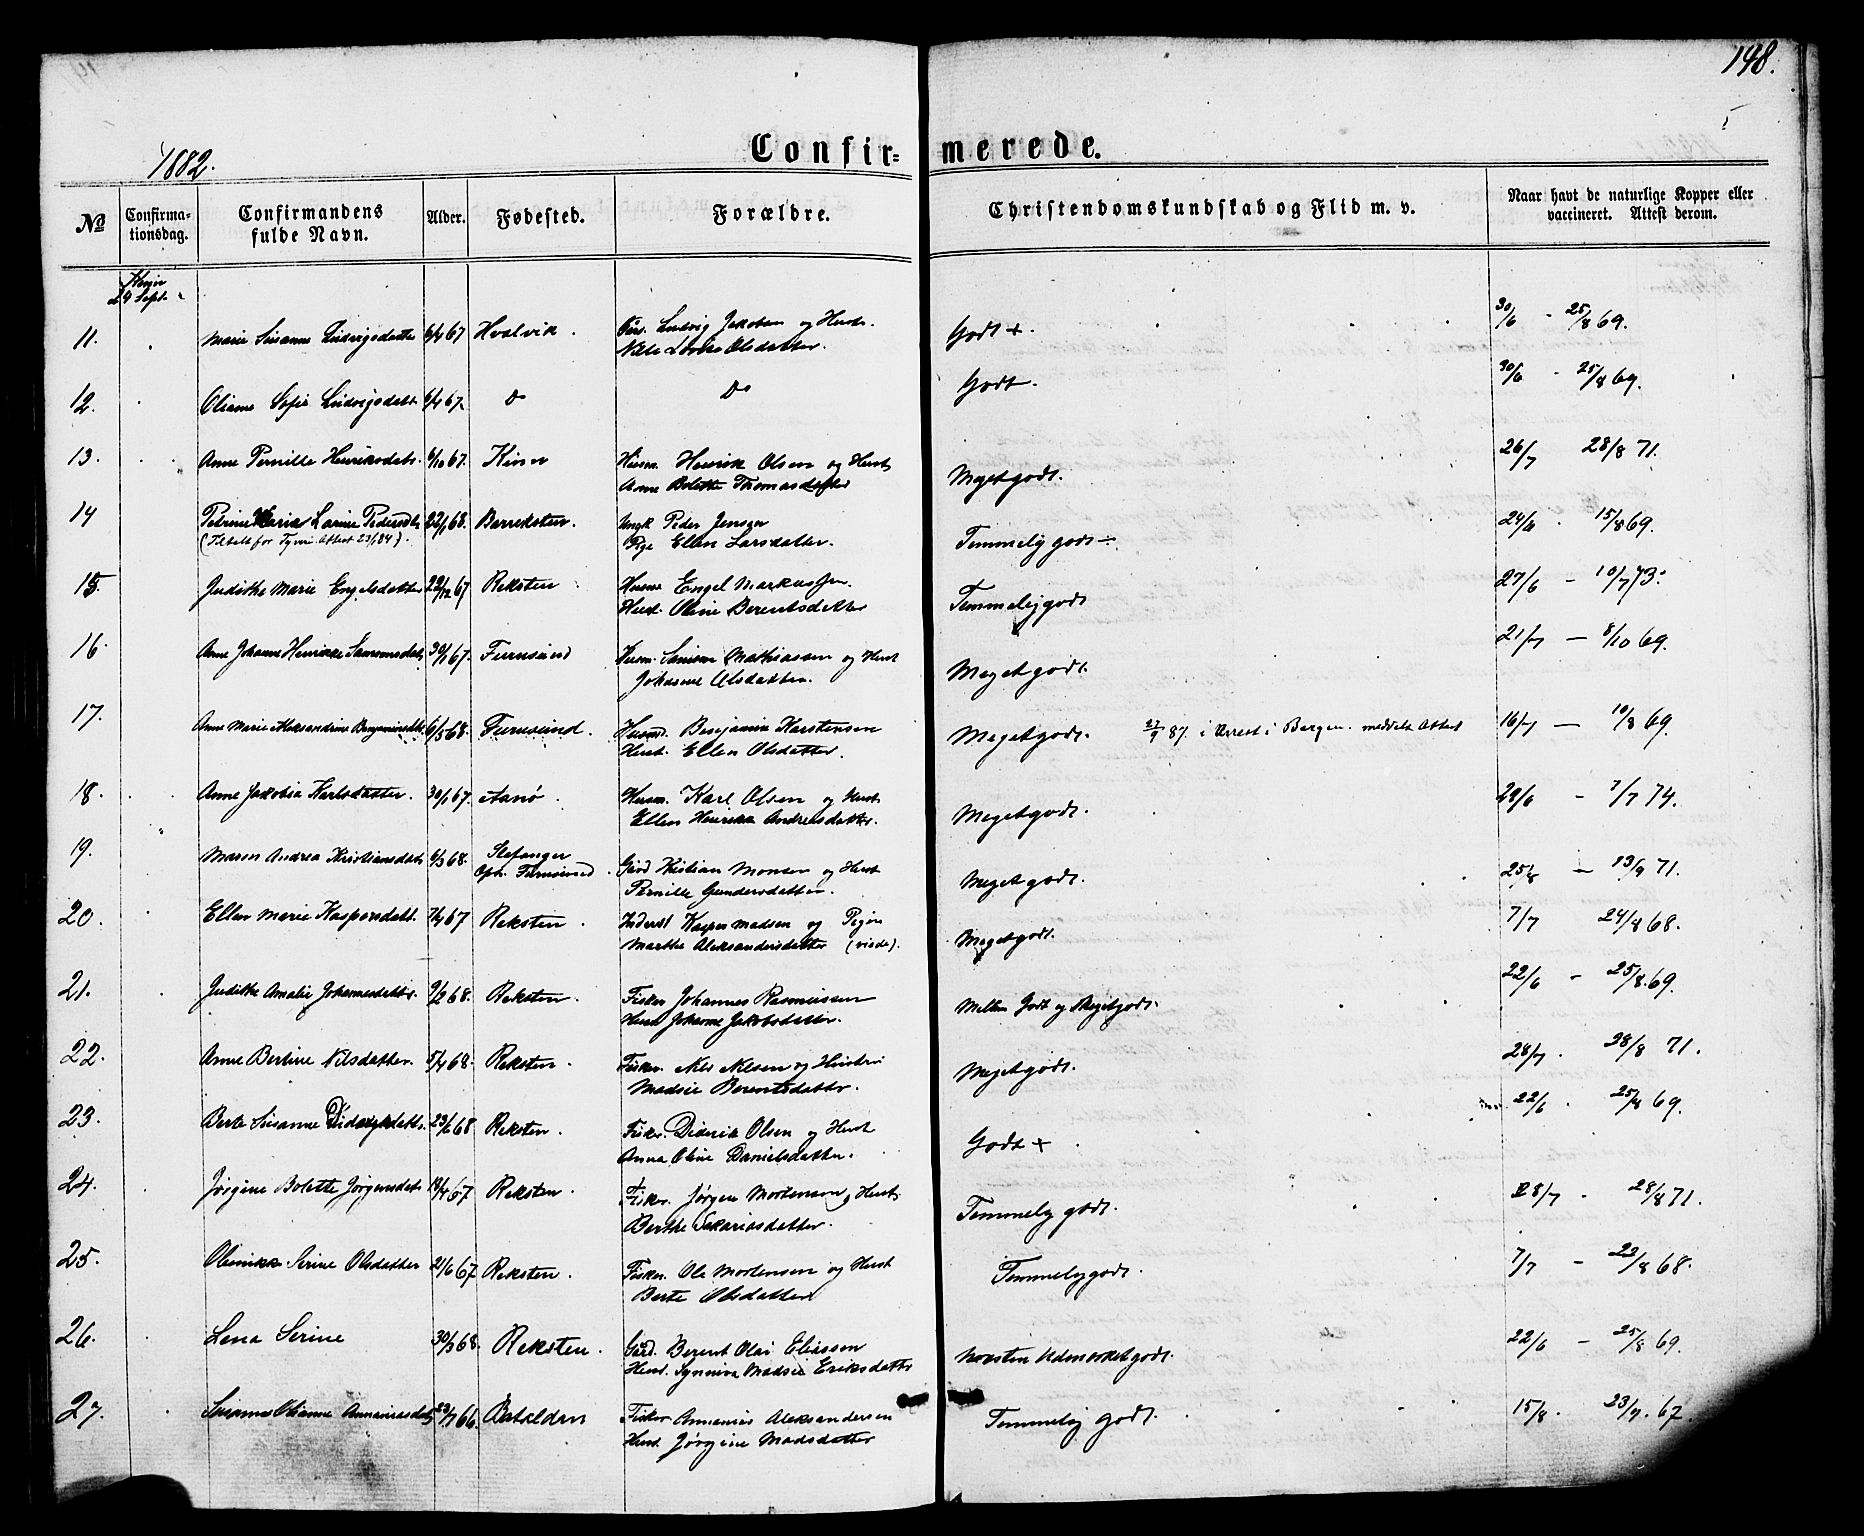 198.
1882.
Confir=merede.
No
Confirma-
tionsdag.
Confirmandens
fulde Navn.
Alder.
Fødested.
Forældre.
Christendomskundskab og Flid m. v.
Naar havt de naturlige Kopper eller
vaccineret. Attest derom.
Sept.
11. Marie Susanne Ludvigsdatter 6/4 67 Hvalvik. Ludvig Jakobsen og Hust. Godt +. 30/6 - 25/8 69.
Olsdatter.
12. Oliane Sofie Ludvigsdatt. 6/4 67. Do Do Godt. 30/6 - 25/8 69.
13. Anne Pernille Henriksdatr. 6/10 67. Kinn Husm. Henrik Olsen og Hust Megetgodt. 26/7 28/8 71.
Anne Bolette Thomasdatter
14 Petrine Maria Larine Pedersdtr 22/1 68. Barreksten. Ungk Peder Jensen Temmelig godt ÷. 24/8 15/8 69.
(Tiltalt for Tyvri. Attest 23/1 84). Pige Ellen Larsdatter.
15. Judithe Marie Engelsdatter 22/12 67 Reksten Husm Engel Markussen. Temmeligodt 27/6 - 10/7 73.
Hust. Oline Berentsdatter
16. Anne Johanne Henrikke Samsonsdatr 30/1 67. Furusund Husm. Samson Mathiassen og Hust Megetgodt. 21/7 - 8/10 69.
Johanne Olsdatter.
17. Anne Marie Aleksandrine Benjaminsdtr. 6/5 68. Furusund. Husmd. Benjamin Karstensen Megetgodt. 27/9 87. i Arrest i Bergen. meddelt Attest 16/7 - 10/8 69.
Hust. Ellen Olsdatter.
18. Anne Jakobia Karlsdatter. 30/1 67. Aanø. Husm. Karl Olsen og Hust. Megetgodt. 28/6 - 7/7 74.
Ellen Henrikke Andreasdatter.
19. Maren Andrea Kristiansdatr 6/3 68. Stafanger Gård Kristian Monsen og Hust Megetgodt. 25/8 - 13/9 71.
Oph. Furusund. Pernille Gundersdatter.
20. Ellen Marie Kaspersdatt. 7/4 67 Reksten. Inderst Kasper Madsen og Pigen Megetgodt. 7/7 24/8 68.
Marthe Aleksandersdatter (viede).
21. Judithe Amalie Johannesdattr. 9/2 68. Reksten. Fisker Johannes Rasmussen Mellem Godt og Megetgodt. 22/6 - 25/8 69.
Hust Johanne Jakobsdatter.
22. Anne Bertine Nilsdatter. 5/4 68. Reksten. Fisker. Nils Nilsen og Hustru Megetgodt. 28/7. 28/8 71.
Madsie Berentsdatter.
23. Berte Susanne Dideriksdattr. 23/6 68 Reksten. Fisker. Diderik Olsen og Hust Godt + . 22/6. 25/8 69.
Anna Oline Danielsdatter.
24. Jørgine Bolette Jørgensdat. 18/4 67 Reksten. Fisker. Jørgen Mortensen og Hust. Temmelig godt. 28/7. 28/8 71.
Berthe Sakariasdatter.
25. Olsdatter 21/6 67 Reksten. Fisker. Ole Mortensen og Hust Temmeliggodt. 7/7 - 22/8 68.
Berte Olsdatter
26. Lena Serine 30/3 68. Reksten. Gård. Berent Olai Eliassen Næsten Udmærketgodt. 22/6 - 25/8 69.
Hust. Synniva Madsie Eriksdatter
27. Susanne Oliane Annaniasdatr 23/7 66. Batalden Fisker Annanias Aleksandersen Temmelig godt. 15/8. 23/9. 67.
Hust. Jørgine Madsdatter